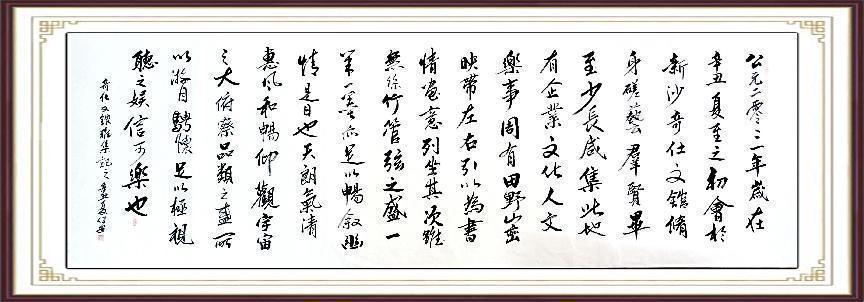 公元二零二一年歲在
辛丑夏至之初會於
新沙奇仕文館脩
身磋藝羣賢畢
至少長咸集此地
有企業文化人文
樂事周有田野山巒
映帶左右引以為書
情畫意列坐其次雖
無絲竹管弦之盛一
筆一墨亦足以暢敘幽
情是日也天朗氣清
惠風和暢仰觀宇宙
之大俯察品類之盛所
以游目騁懷足以極視
聽之娛信可樂也
奇仕文館雅集記之辛丑夏